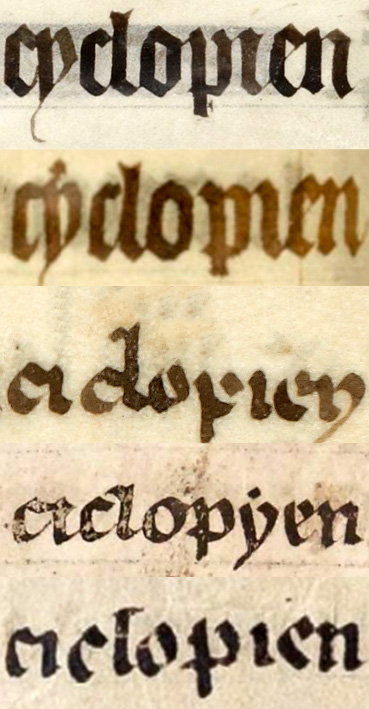 cyclopien
cyclopien
ciclopien
ciclopyen
ciclopien